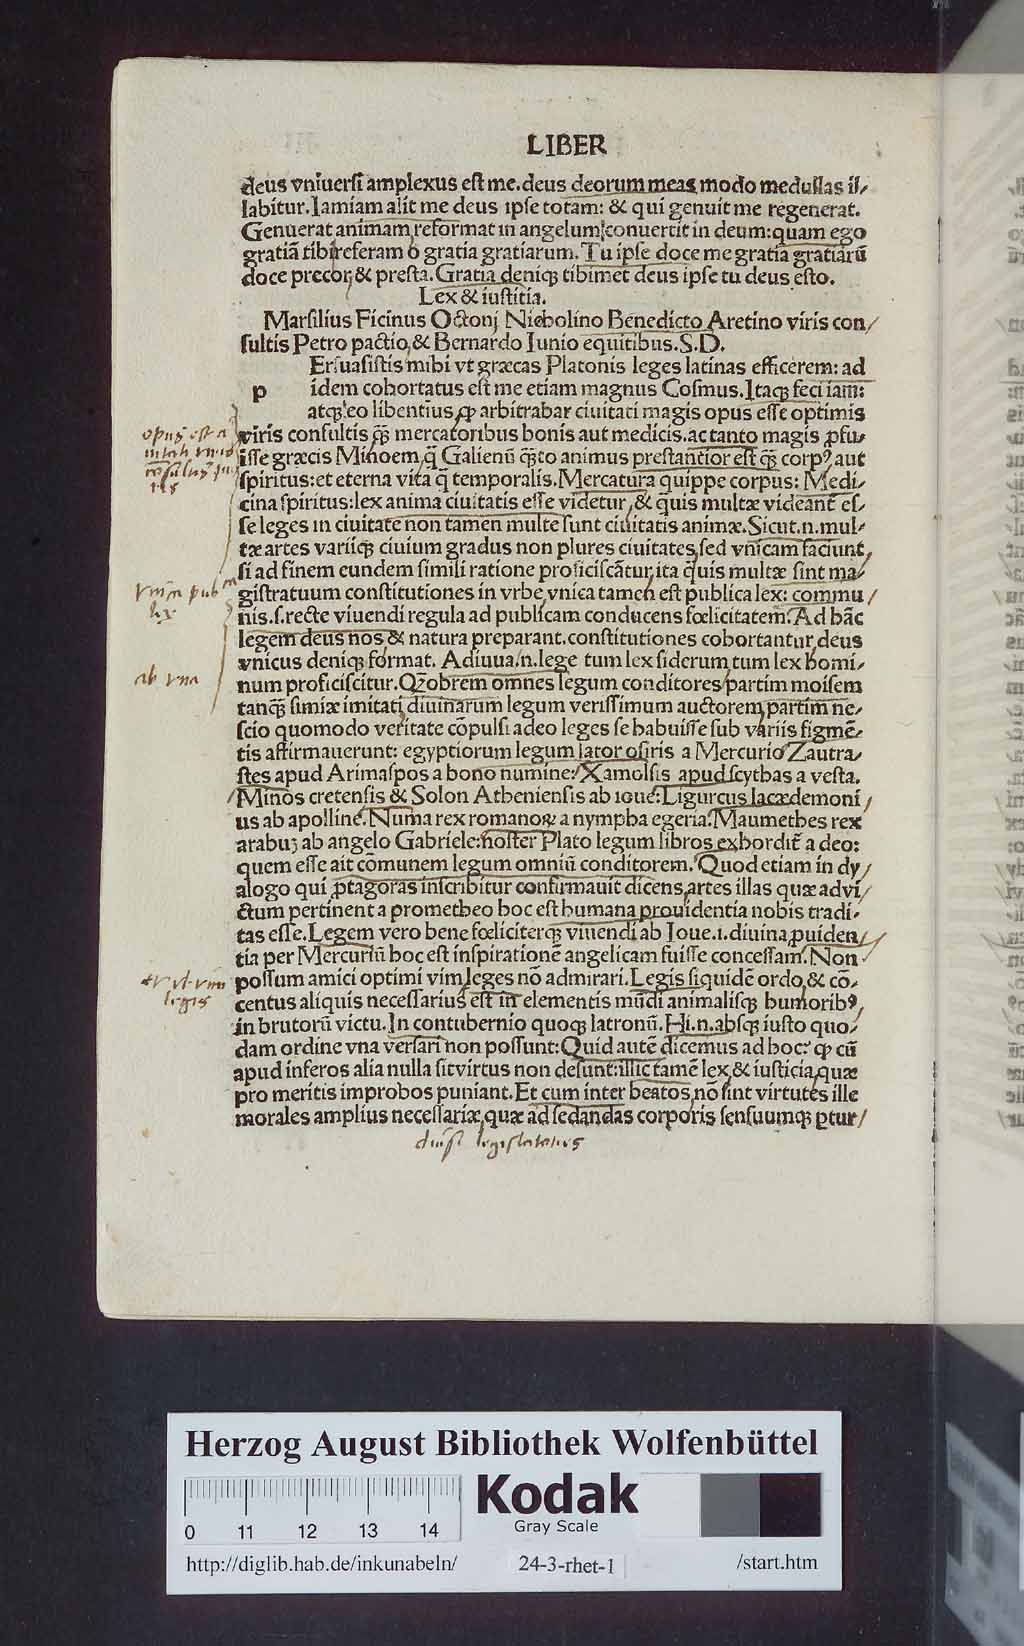 LIBER
deus vniuersi amplexus est me.deus deorum meas modo medullas il-
labitur.Iamiam alit me deus ipse totam: & qui genuit me regenerat.
Genuerat animam,reformat in angelum:conuertit in deum:quam ego
gratiā tibi referam o gratia gratiarum.Tu ipse doce me gratia gratiarū
doce precor, & presta.Gratia deniqꝫ tibimet deus ipse tu deus esto.
Lex & iustitia.
Marsilius Ficinus Octoni Nicholino Benedicto Aretino viris con/
sultis Petro pactio,& Bernardo Iunio equitibus.S.D.
p
Ersuasistis mihi vt græcas Platonis leges latinas efficerem: ad
idem cohortatus est me etiam magnus Cosmus.Itaqꝫ feci iam:
atqꝫ eo libentius ꝙ arbitrabar ciuitati magis opus esse optimis
viris consultis q̄ꝫ mercatoribus bonis aut medicis.ac tanto magis ꝓfu-
isse græcis Minoem q̄ Galienū q̄ꝫto animus prestantior est q̄ꝫ corpꝰ aut
spiritus:et eterna vita q̄ temporalis.Mercatura quippe corpus: Medi-
cina spiritus:lex anima ciuitatis esse videtur,& quis multæ videant̄ es-
se leges in ciuitate non tamen multe sunt ciuitatis animæ.Sicut.n.mul-
tæ artes variiqꝫ ciuium gradus non plures ciuitates,sed vnicam faciunt,
si ad finem eundem simili ratione proficiscātur,ita quis multæ sint ma-
gistratuum constitutiones in vrbe,vnica tamen est publica lex: commu/
nis.s.recte viuendi regula ad publicam conducens fœlicitatem.Ad hāc
legem deus nos & natura preparant.constitutiones cohortantur,deus
vnicus deniqꝫ format. A diuua.n.lege tum lex siderum,tum lex homi-
num proficiscitur.Qȝobrem omnes legum conditores,partim moisem
tanq̄ꝫ simiæ imitati,diuinarum legum verissimum auctorem,partim ne-
scio quomodo veritate cōpulsi adeo leges se habuisse sub variis figmē-
tis affirmauerunt: egyptiorum legum lator osiris a Mercurio Zautra-
stes apud Arimaspos a bono numine: Xamolsis apud scythas a vesta.
Minos cretensis & Solon Atheniensis ab ioue:Ligurcus lacædemoni/
us ab apolline.Numa rex romanoꝝ a nympha egeria.Maumethes rex
arabuꝫ ab angelo Gabriele:noster Plato legum libros exhordit̄ a deo:
quem esse ait cōmunem legum omniū conditorem. Quod etiam in dy/
alogo qui ꝓtagoras inscribitur confirmauit dicens,artes illas quæ ad vi/
ctum pertinent a prometheo hoc est humana prouidentia nobis tradi-
tas esse.Legem vero bene fœliciterqꝫ viuendi ab Ioue.i.diuina ꝓuiden/
tia per Mercuriū hoc est inspirationē angelicam fuisse concessam. Non
possum amici optimi vim leges nō admirari.Legis siquidē ordo,& cō-
centus aliquis necessarius est in elementis mūdi animalisqꝫ humoribꝰ,
in brutorū victu.In contubernio quoqꝫ latronū.Hi.n.absqꝫ iusto quo-
dam ordine vna versari non possunt:Quid autē dicemus ad hoc? ꝙ cū
apud inferos alia nulla sit virtus non desunt:illic tamē lex,& iusticia,quæ
pro meritis improbos puniant.Et cum inter beatos nō sint virtutes ille
morales amplius necessariæ,quæ ad sedandas corporis sensuumqꝫ ꝑtur/
ab vna
legis
Herzog August Bibliothek Wolfenbüttel
Kodak
Gray Scale
0 11 12 13 14
http://diglib.hab.de/inkunabeln/ 24-3-rhet-1 /start.htm